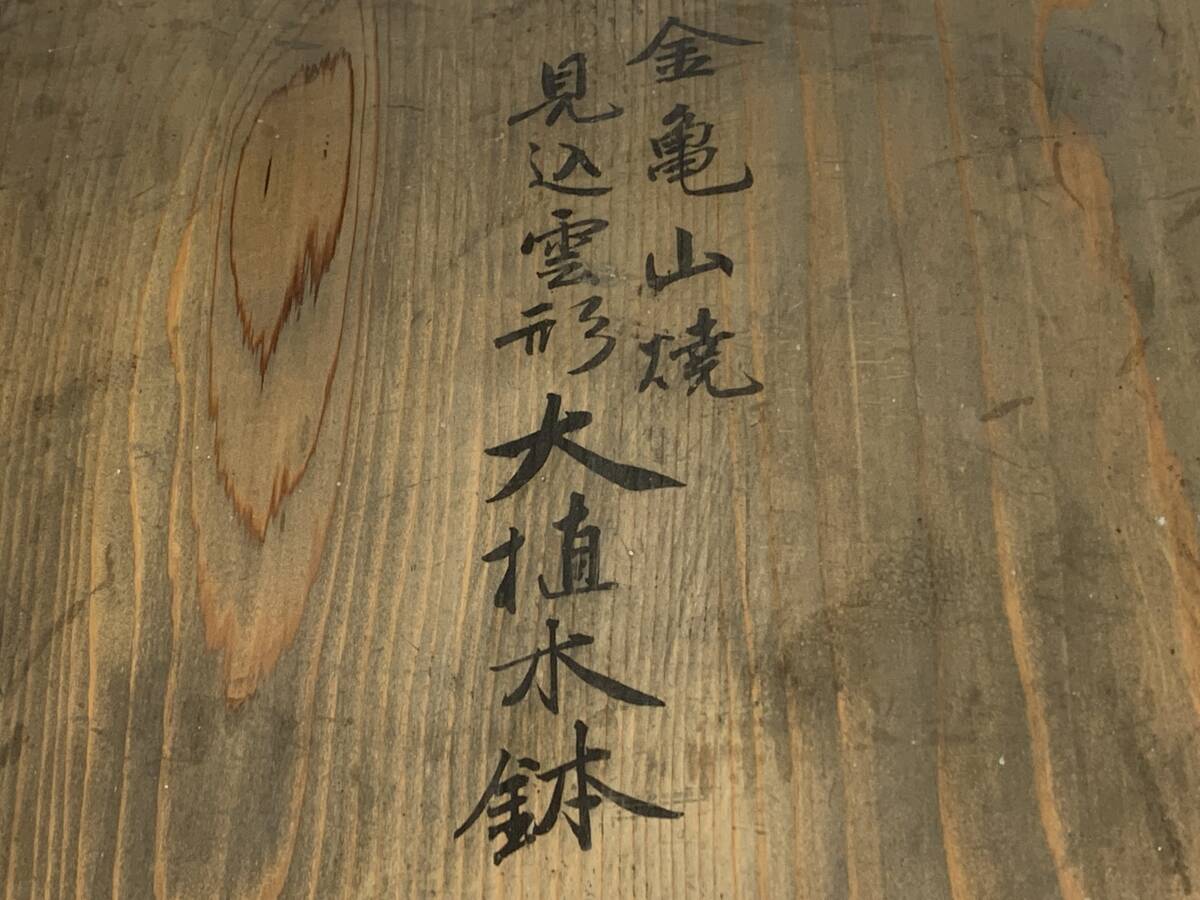 金亀山燒
見込雲形大植木鉢